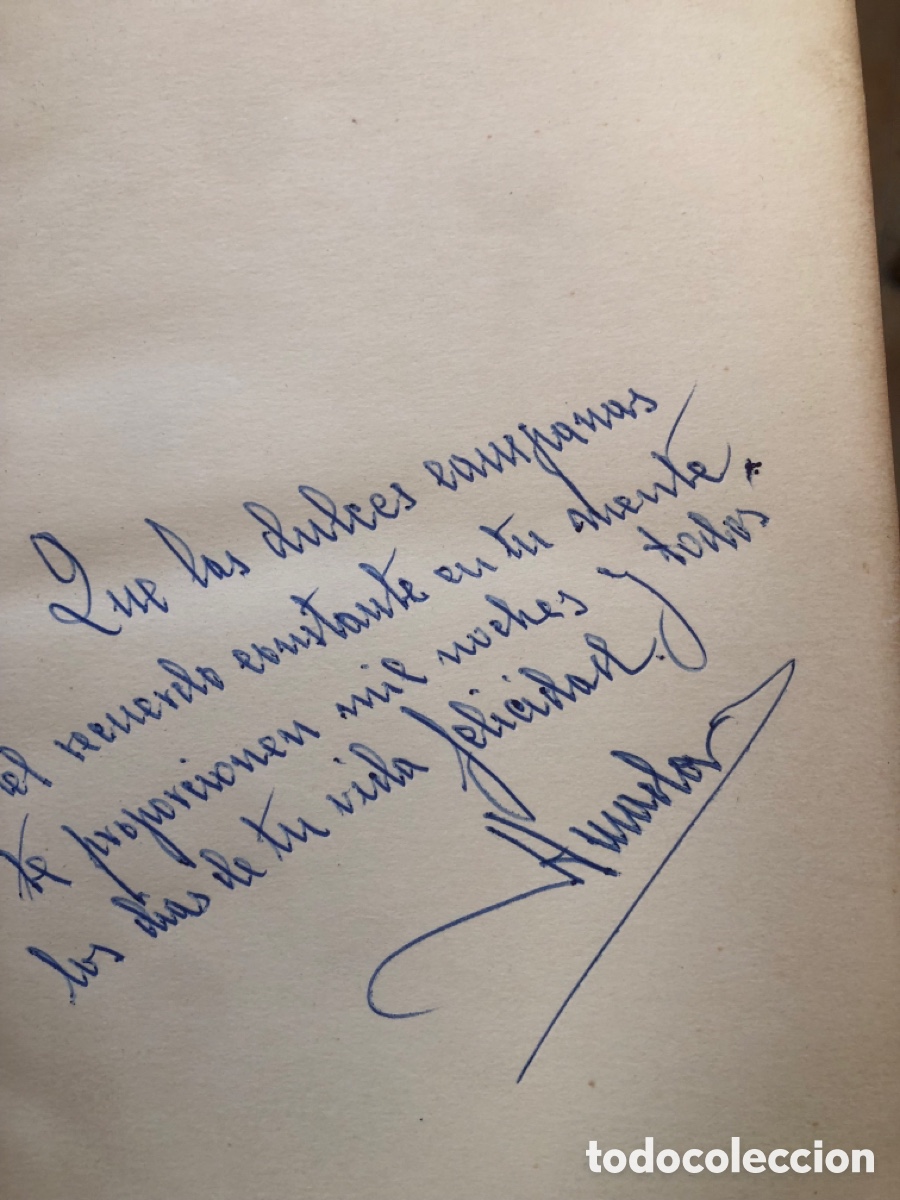 Que las dulces campanas
el recuerdo constante en tu mente.
te proporcionen mil noches y todos
los días de tu vida felicidad.
Amador
todocoleccion